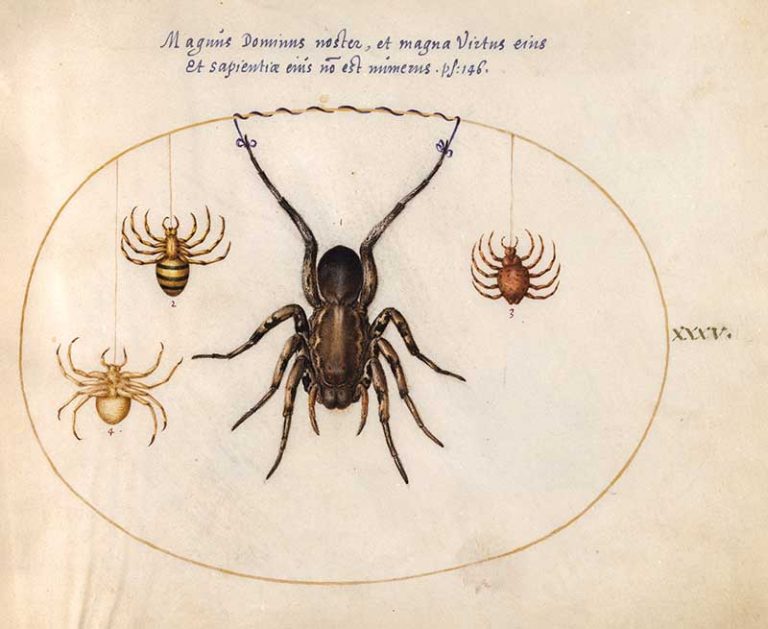 Magnus Dominus noster, et magna Virtus eius
Et sapientiæ eius nõ est numerus . ps: 146.
1
2
3
XXXV.
4